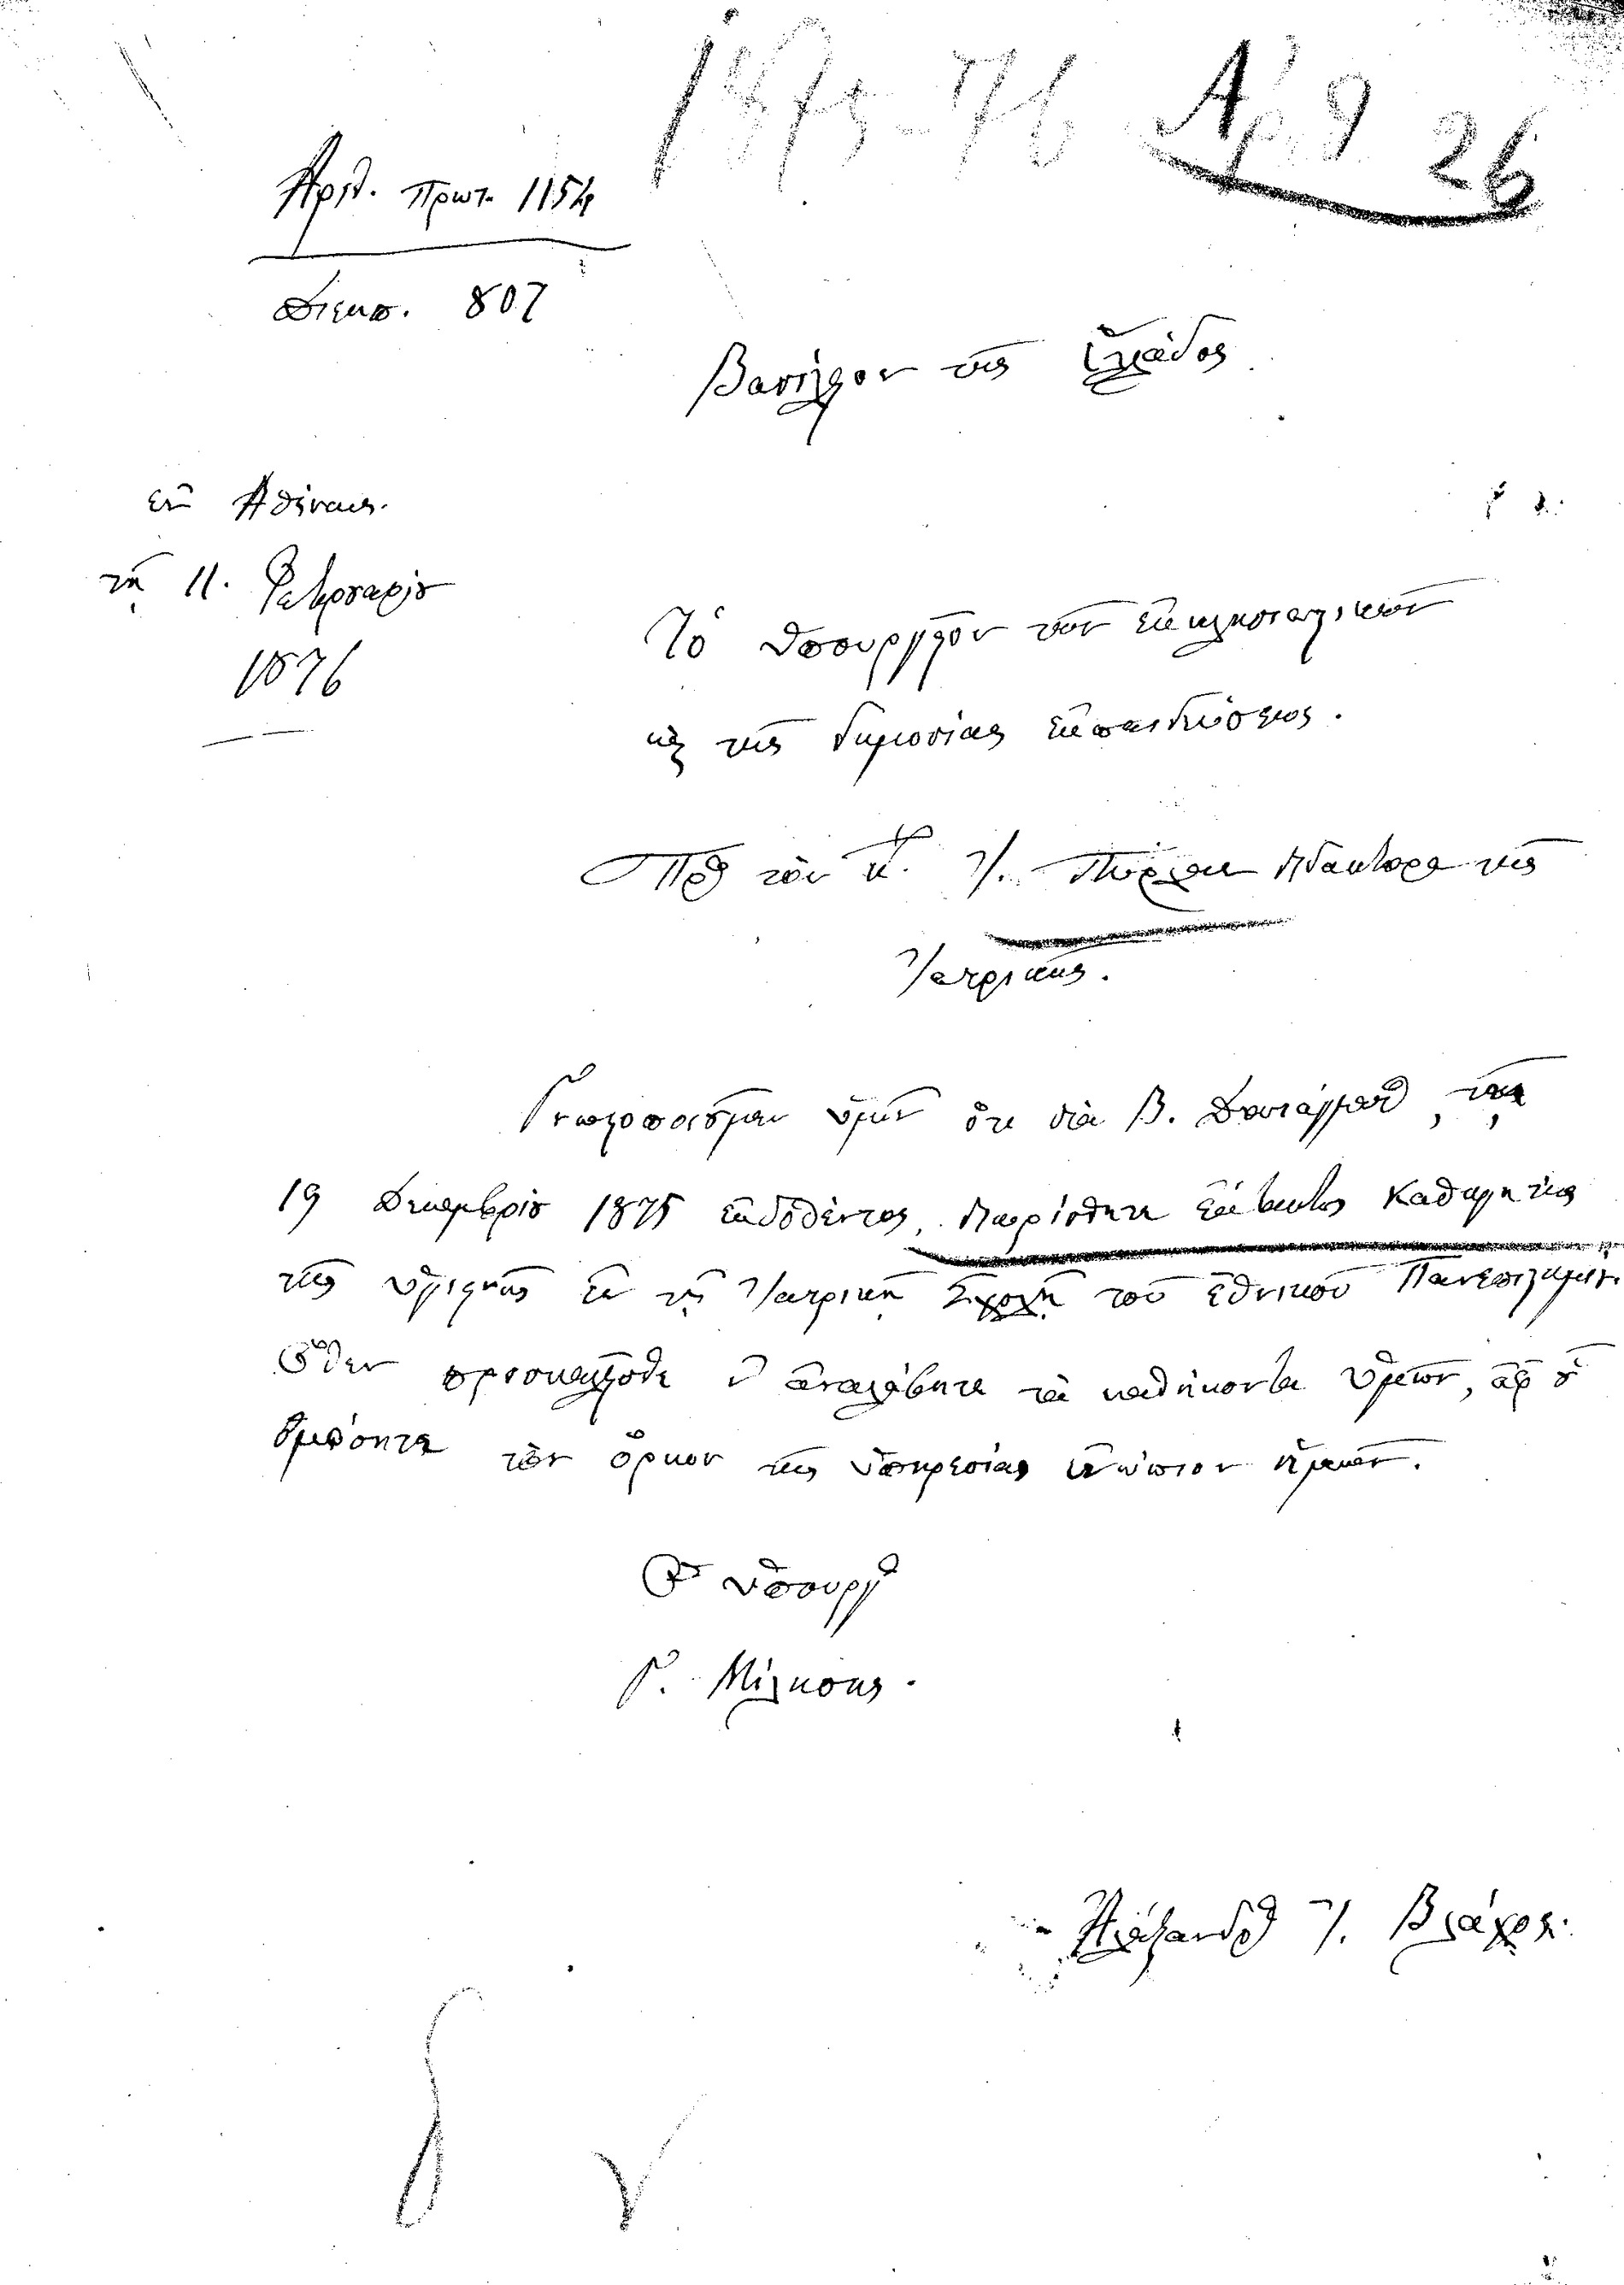 1875-76 Αρ. 26
Αριθ. Πρωτ. 1154
Διεκπ. 807
Βασίλειον τῆς Ἑλλάδος
ἐν Ἀθήναις.
τῇ 11. Φεβρουαρίου
1876
Τὸ Ὑπουργεῖον τῶν Ἐκκλησιαστικῶν
κὶ τῆς δημοσίας ἐκπαιδεύσεως.
Πρὸς τὸν κ. Ι. διδάκτορα τῆς
Ἰατρικῆς.
Γνωστοποιοῦμεν ὑμῖν ὅτι διὰ Β. Διατάγματος, τῇ
19 Δεκεμβρίου 1875 ἐκδοθέντος, διωρίσθητε ἐπίτιμος Καθηγητὴς
τῆς ὑγιεινῆς ἐν τῇ Ἰατρικῇ Σχολῇ τοῦ ἐθνικοῦ Πανεπιστημίου.
Ὅθεν προσκαλεῖσθε ν' ἀναλάβητε τὰ καθήκοντα ὑμῶν, ἀφ' οὗ
ὀμόσητε τὸν ὅρκον τῆς ὑπηρεσίας ἐνώπιον ἡμῶν.
Ὁ Ὑπουργὸς
Γ. Μίλησης.
Ἀλέξανδρος Ι. Βλάχος.